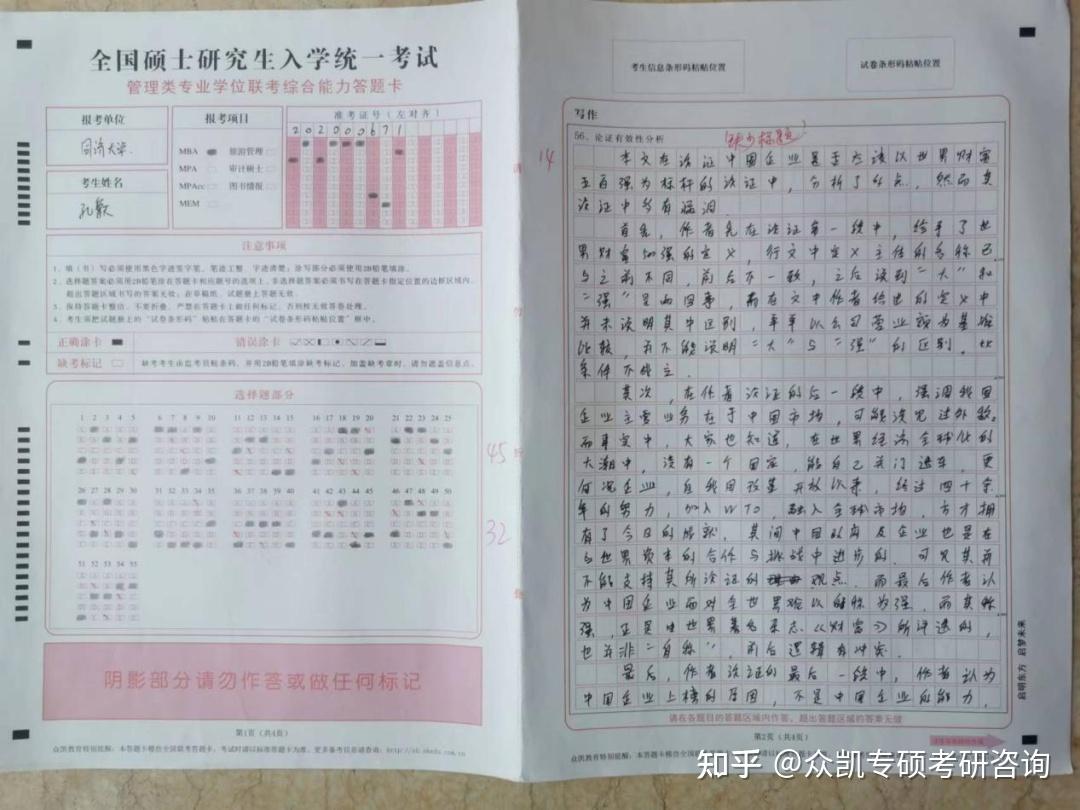 全国硕士研究生入学统一考试
管理类专业学位联考综合能力答题卡
报考单位
同济大学
考生姓名
报考项目
MBA 旅游管理
MPA 审计硕士
MPAcc 图书情报
MEM
准考证号(左对齐)
2 0 2 0 0 0 6 7 1
注意事项
1. 填(书)写必须使用黑色字迹签字笔,笔迹工整、字迹清楚;涂写部分必须使用2B铅笔填涂。
2. 选择题答案必须用2B铅笔涂在答题卡相应题号的选项上,非选择题答案必须书写在答题卡指定位置的边框区域内。
超出答题区域书写的答案无效;在草稿纸、试题册上答题无效。
3. 保持答题卡整洁、不要折叠,严禁在答题卡上做任何标记,否则按无效答卷处理。
4. 考生须把试题册上的“试卷条形码”粘贴在答题卡的“试卷条形码粘贴位置”框中。
正确涂卡 错误涂卡
缺考标记 缺考考生由监考员贴条码,并用2B铅笔填涂缺考标记。加盖缺考章时,请勿遮盖信息点。
选择题部分
1 2 3 4 5 6 7 8 9 10 11 12 13 14 15 16 17 18 19 20 21 22 23 24 25
26 27 28 29 30 31 32 33 34 35 36 37 38 39 40 41 42 43 44 45 46 47 48 49 50
51 52 53 54 55
45
32
阴影部分请勿作答或做任何标记
第1页(共4页)
考生信息条形码粘贴位置
试卷条形码粘贴位置
写作
56、论证有效性分析
缺少标题
14
本文在论证中国企业是否应该以世界财富
五百强为标杆的论证中,分析了几点,然而其
论证中多有漏洞.
首先,作者先在论证第一段中,给予了世
界财富500强的定义,行文中定义主体的名称已
与之前不同,前后不一致,之后谈到“大”和
“强”是两回事,而在文中作者给出的定义中
并未说明其中区别,单单以公司营业额为基础
比较,并不能说明“大”与“强”的区别,此
条件不成立.
其次,在作者论证的后一段中,强调我国
企业主营业务在于中国市场,可能没见过外敌。
而事实中,大家也知道,在世界经济全球化的
大潮中,没有一个国家,能自己关门造车,更
何况企业,自我国改革开放以来,经过四十余
年的努力,加入WTO,融入全球市场,方才拥
有了今日的成就,其间中国政府及企业也是在
与世界资本的合作与挑战中进步的.可见其并
不能支持其所论证的观点.而最后作者认
为中国企业面对全世界难以自称为强,而其称
强,正是由世界著名杂志《财富》所评选的,
也并非“自称”,前后逻辑有冲突.
最后,作者论证的最后一段中,作者认为
中国企业上榜的原因,不是中国企业的能力,
请在各题目的答题区域内作答,超出答题区域的答案无效
第2页(共4页)
启明东方 启梦未来
知乎 @众凯专硕考研咨询